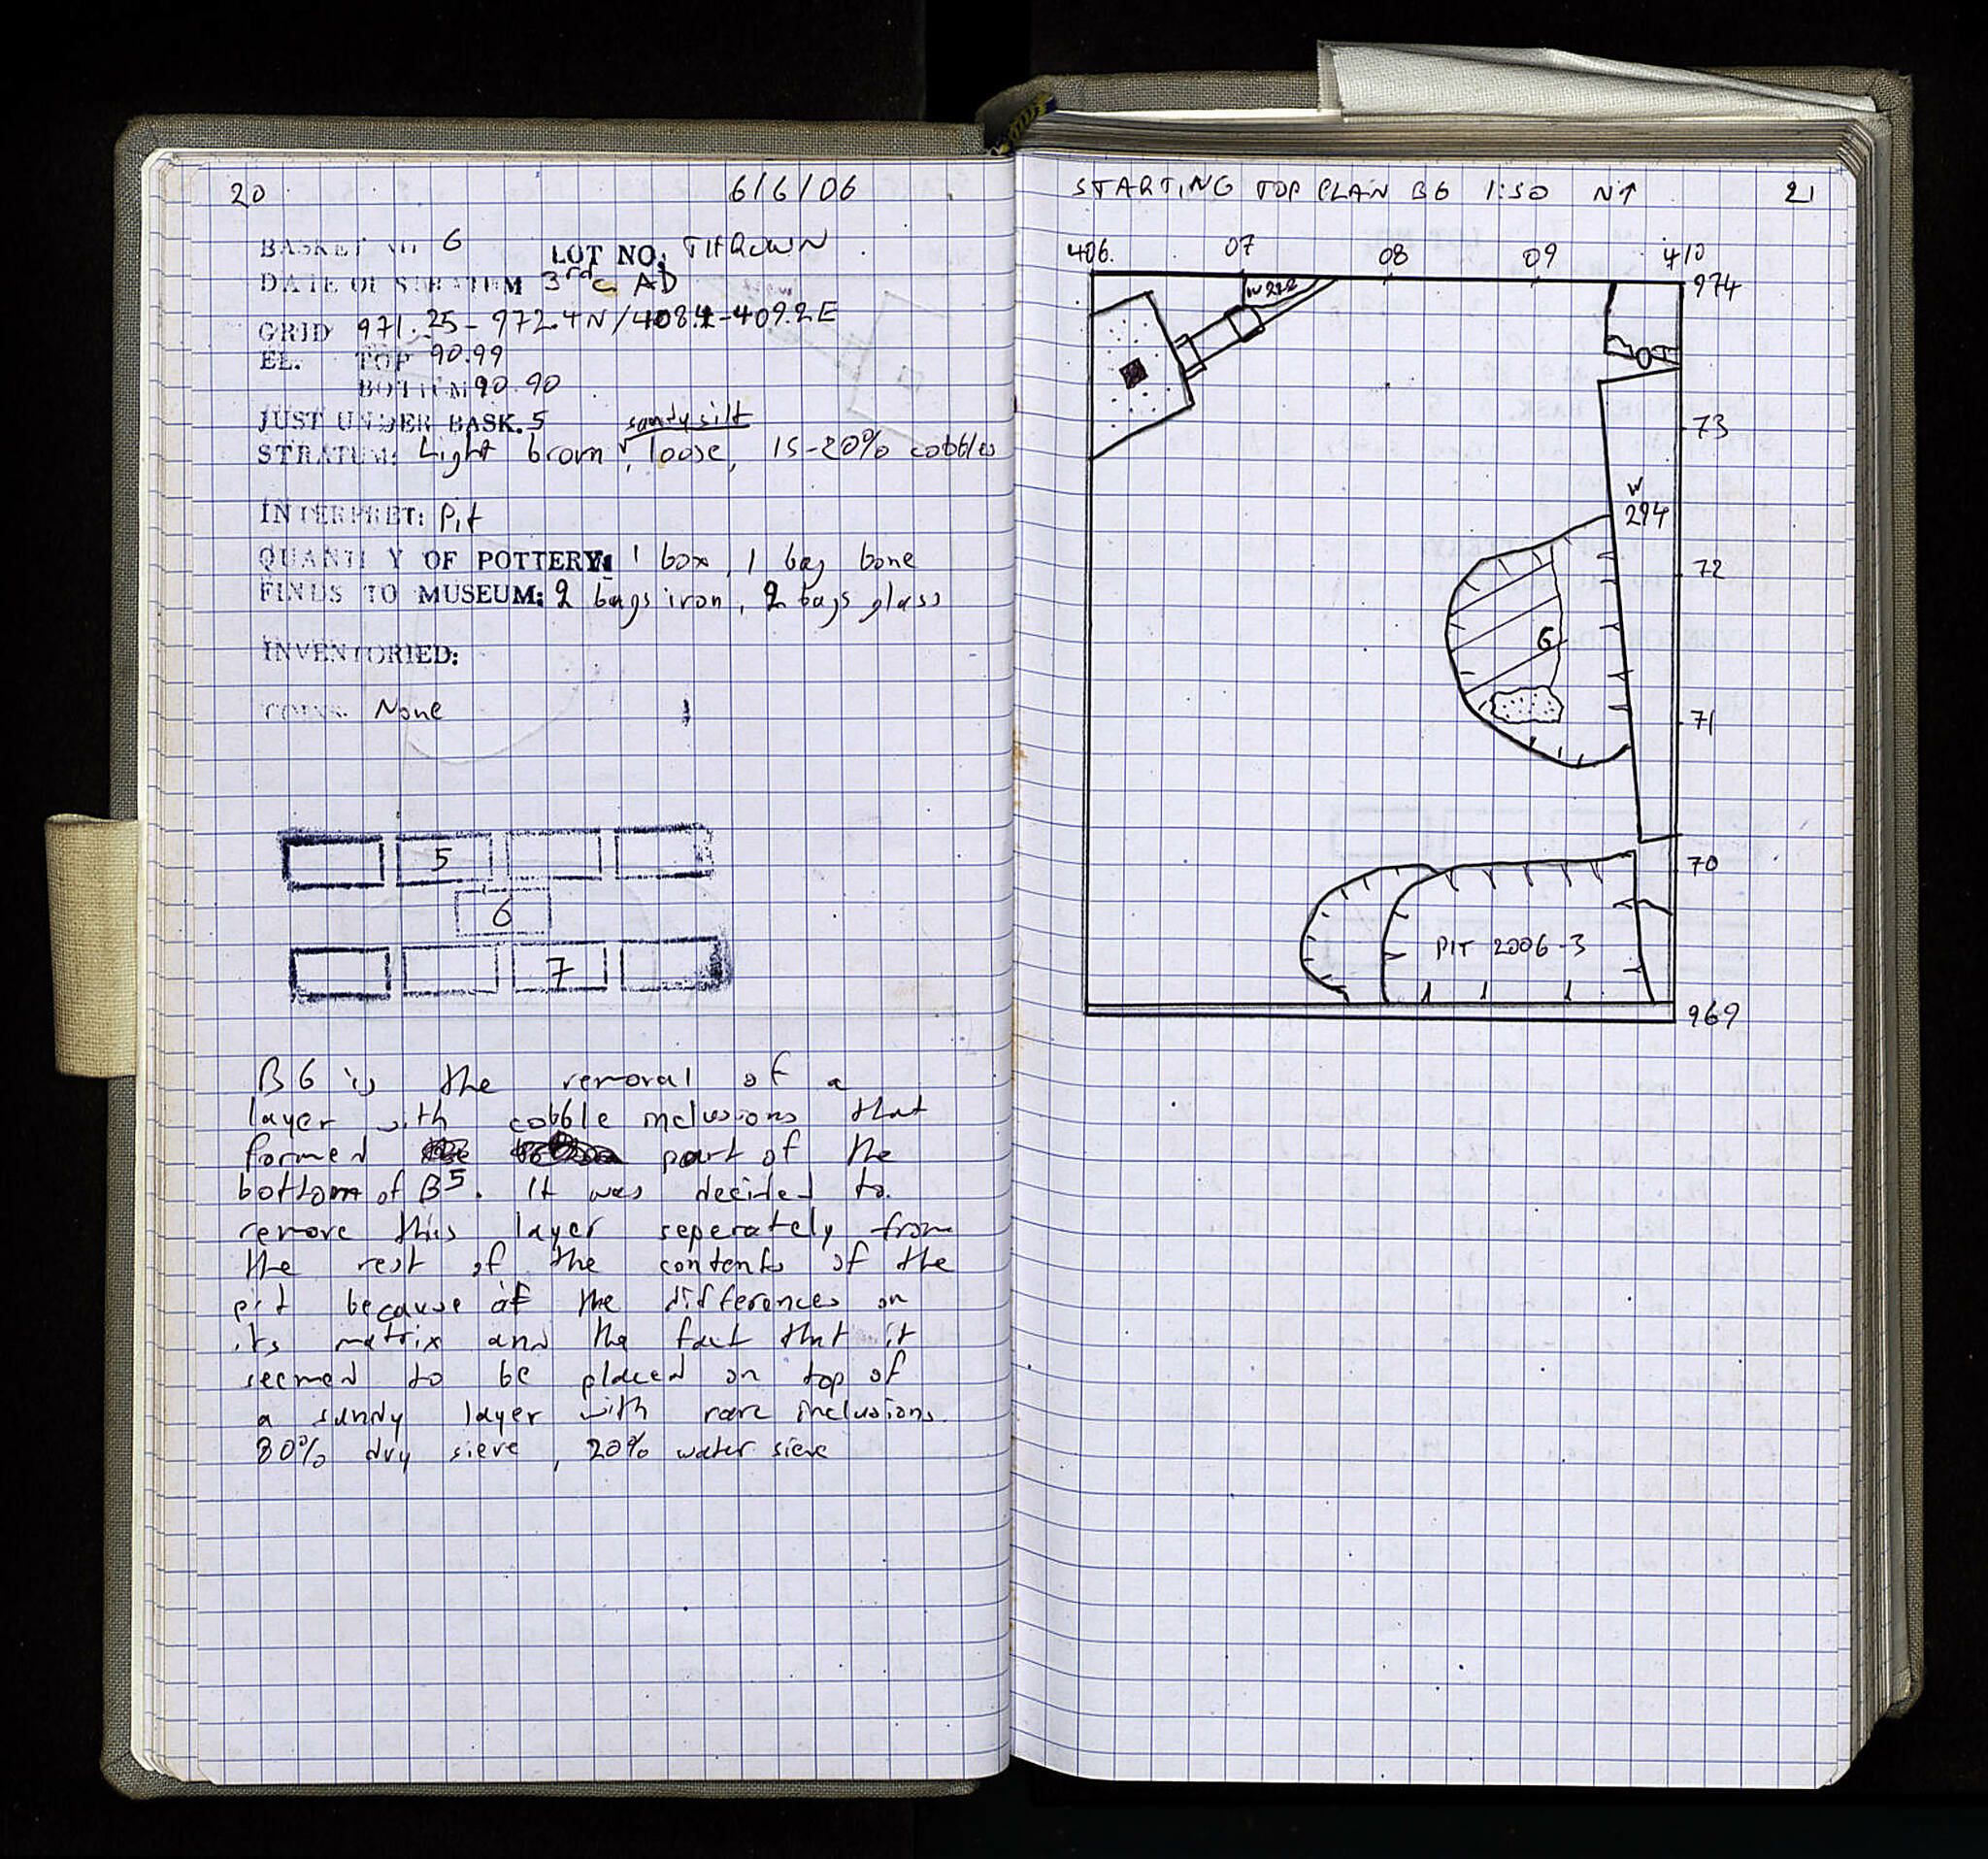 20 6/6/06
BASKET NO 6 LOT NO: THROWN
DATE OF STRATUM 3rd c AD
GRID 971.25-972.4N/408.4-409.2E
EL. TOP 90.99
BOTTEM 90.90
JUST UNDER BASK. 5
sandy silt
STRATUM: Light brown, loose, 15-20% cobbles
INTERPRET: Pit
QUANTI Y OF POTTERY: 1 box, 1 bag bone
FINDS TO MUSEUM: 2 bags iron, 2 bags glass
INVENTORIED:
COINS. None
5
6
7
B6 is the removal of a
layer with cobble inclusions that
formed part of the
bottom of B5. It was decided to
remove this layer seperately from
the rest of the contents of the
pit because of the differences on
its matrix and the fact that it
seemed to be placed on top of
a sandy layer with rare inclusions.
80% dry sieve, 20% water sieve
STARTING TOP PLAN B6 1:50 N↑ 21
406. 07 08 09 410
974
W222
73
W
294
72
6
71
70
PIT 2006-3
969